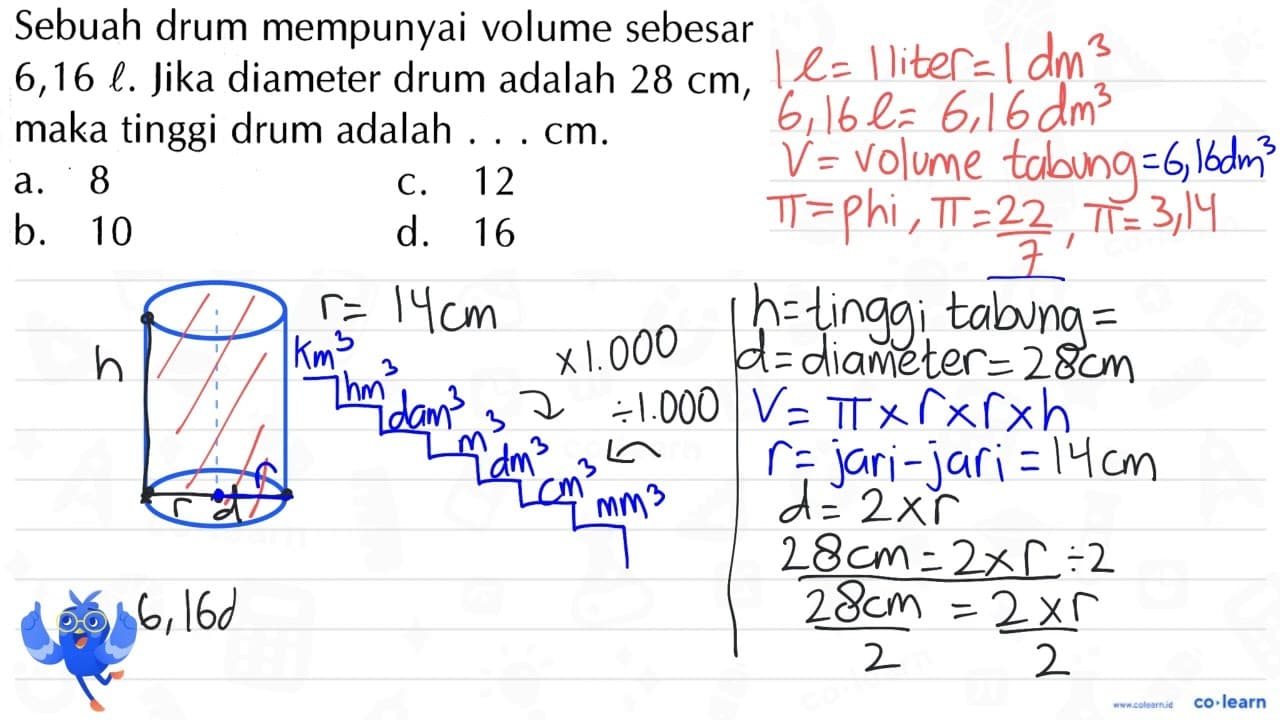 Sebuah drum mempunyai volume sebesar
6,16 ℓ. Jika diameter drum adalah 28 cm,
maka tinggi drum adalah . . . cm.
a. 8 c. 12
b. 10 d. 16
1 ℓ = 1 liter = 1 dm³
6,16 ℓ = 6,16 dm³
V = volume tabung = 6,16 dm³
π = phi, π = 22/7, π = 3,14
r = 14 cm
h
km³
hm³
dam³
m³
dm³
cm³
mm³
×1.000
÷1.000
r
r d
6,16 d
h = tinggi tabung =
d = diameter = 28 cm
V = π × r × r × h
r = jari-jari = 14 cm
d = 2 × r
28 cm = 2 × r ÷ 2
28 cm = 2 × r
2 2
www.colearn.id co·learn